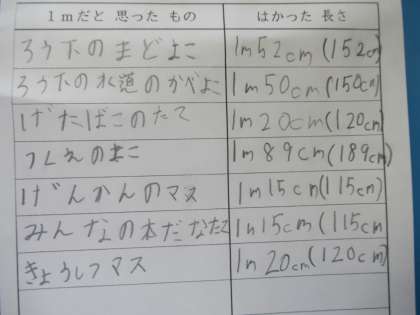 1mだと 思った もの はかった 長さ
ろう下のまどよこ 1m52cm(152cm)
ろう下の水道のかべよこ 1m50cm(150cm)
げたばこのたて 1m20cm(120cm)
つくえのよこ 1m89cm(189cm)
げんかんのマス 1m15cm(115cm)
みんなの本だなたて 1m15cm(115cm
きょうしつマス 1m20cm(120cm)